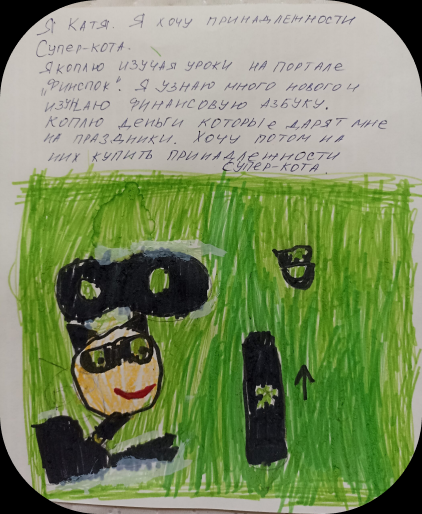 Я КАТЯ. Я ХОЧУ ПРИНАДЛЕЖНОСТИ
СУПЕР-КОТА.
Я КОПЛЮ ИЗУЧАЯ УРОКИ НА ПОРТАЛЕ
„ФИНСПОК". Я УЗНАЮ МНОГО НОВОГО И
ИЗУЧАЮ ФИНАНСОВУЮ АЗБУКУ.
КОПЛЮ ДЕНЬГИ КОТОРЫЕ ДАРЯТ МНЕ
НА ПРАЗДНИКИ. ХОЧУ ПОТОМ НА
НИХ КУПИТЬ ПРИНАДЛЕЖНОСТИ
СУПЕР-КОТА.